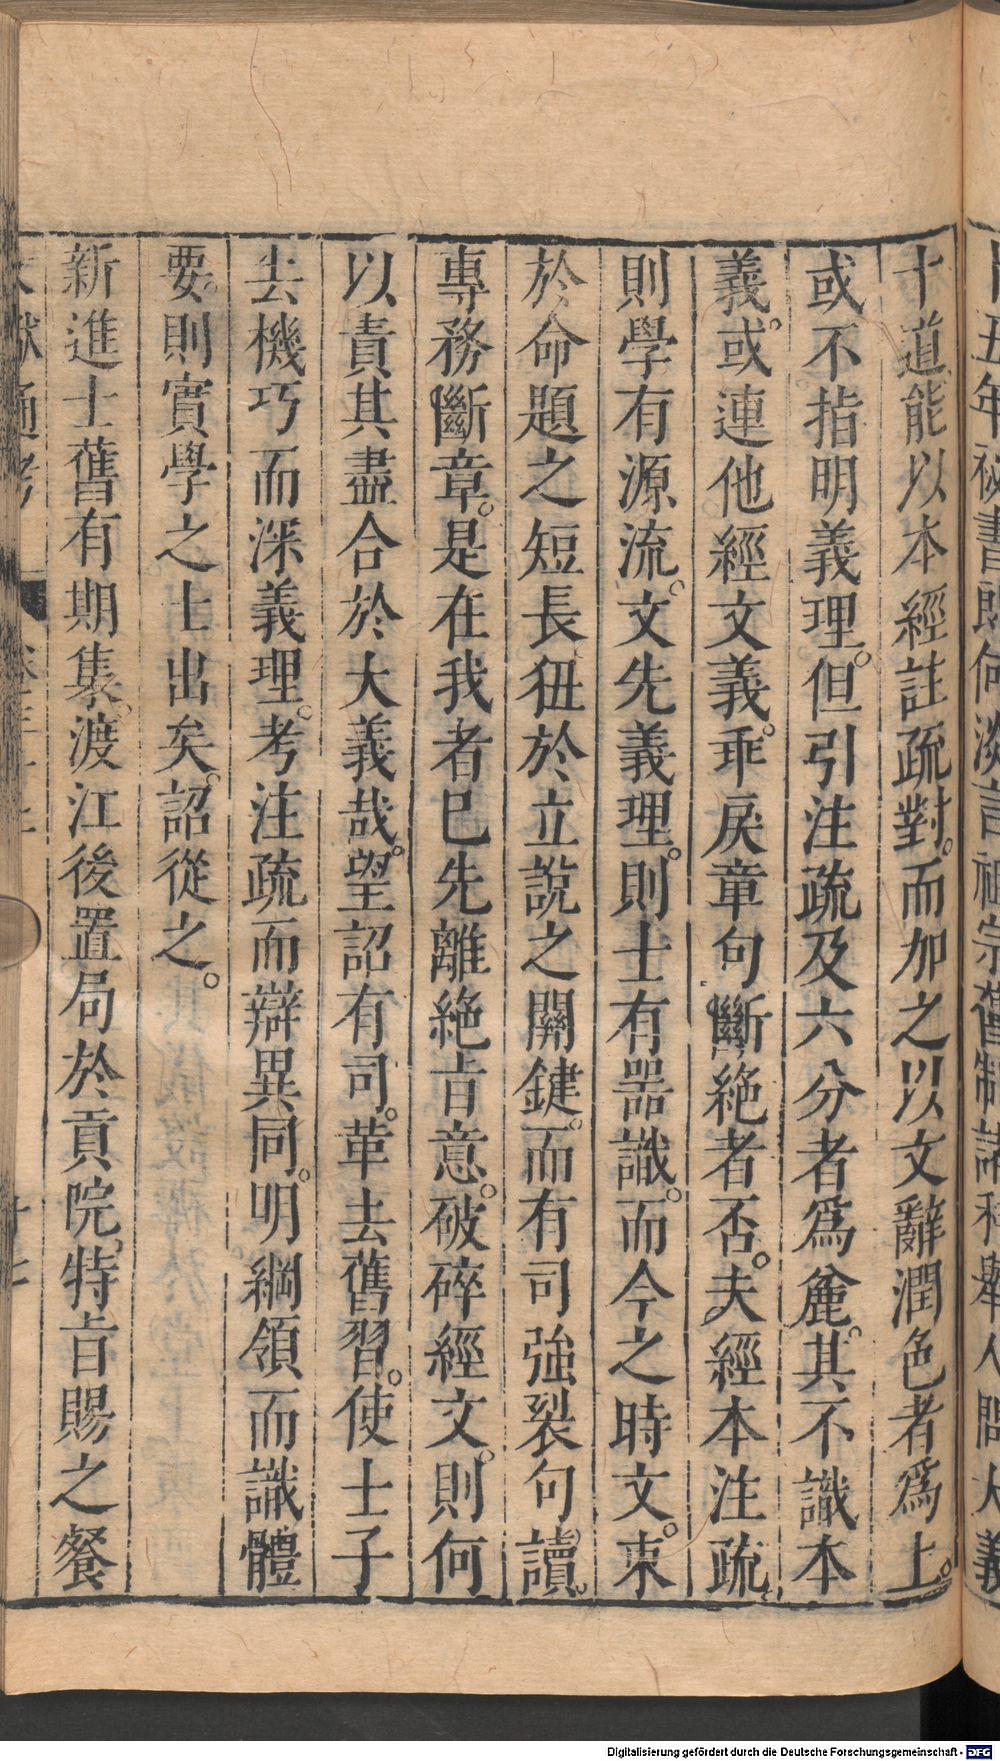 五年祕書郎何澹言祖宗舊制諸科舉人問大義
十道能以本經註疏對而加之以文辭潤色者爲上
或不指明義理但引注疏及六分者爲麄其不識本
義或連他經文義乖戾章句斷絶者否夫經本注疏
則學有源流文先義理則士有器識而今之時文束
於命題之短長狃於立說之關鍵而有司強裂句讀
專務斷章是在我者已先離絶旨意破碎經文則何
以責其盡合於大義哉望詔有司革去舊習使士子
去機巧而深義理考注疏而辯異同明綱領而識體
要則實學之士出矣詔從之
新進士舊有期集渡江後置局於貢院特旨賜之餐
獻通考
Digitalisierung gefördert durch die Deutsche Forschungsgemeinschaft - DFG